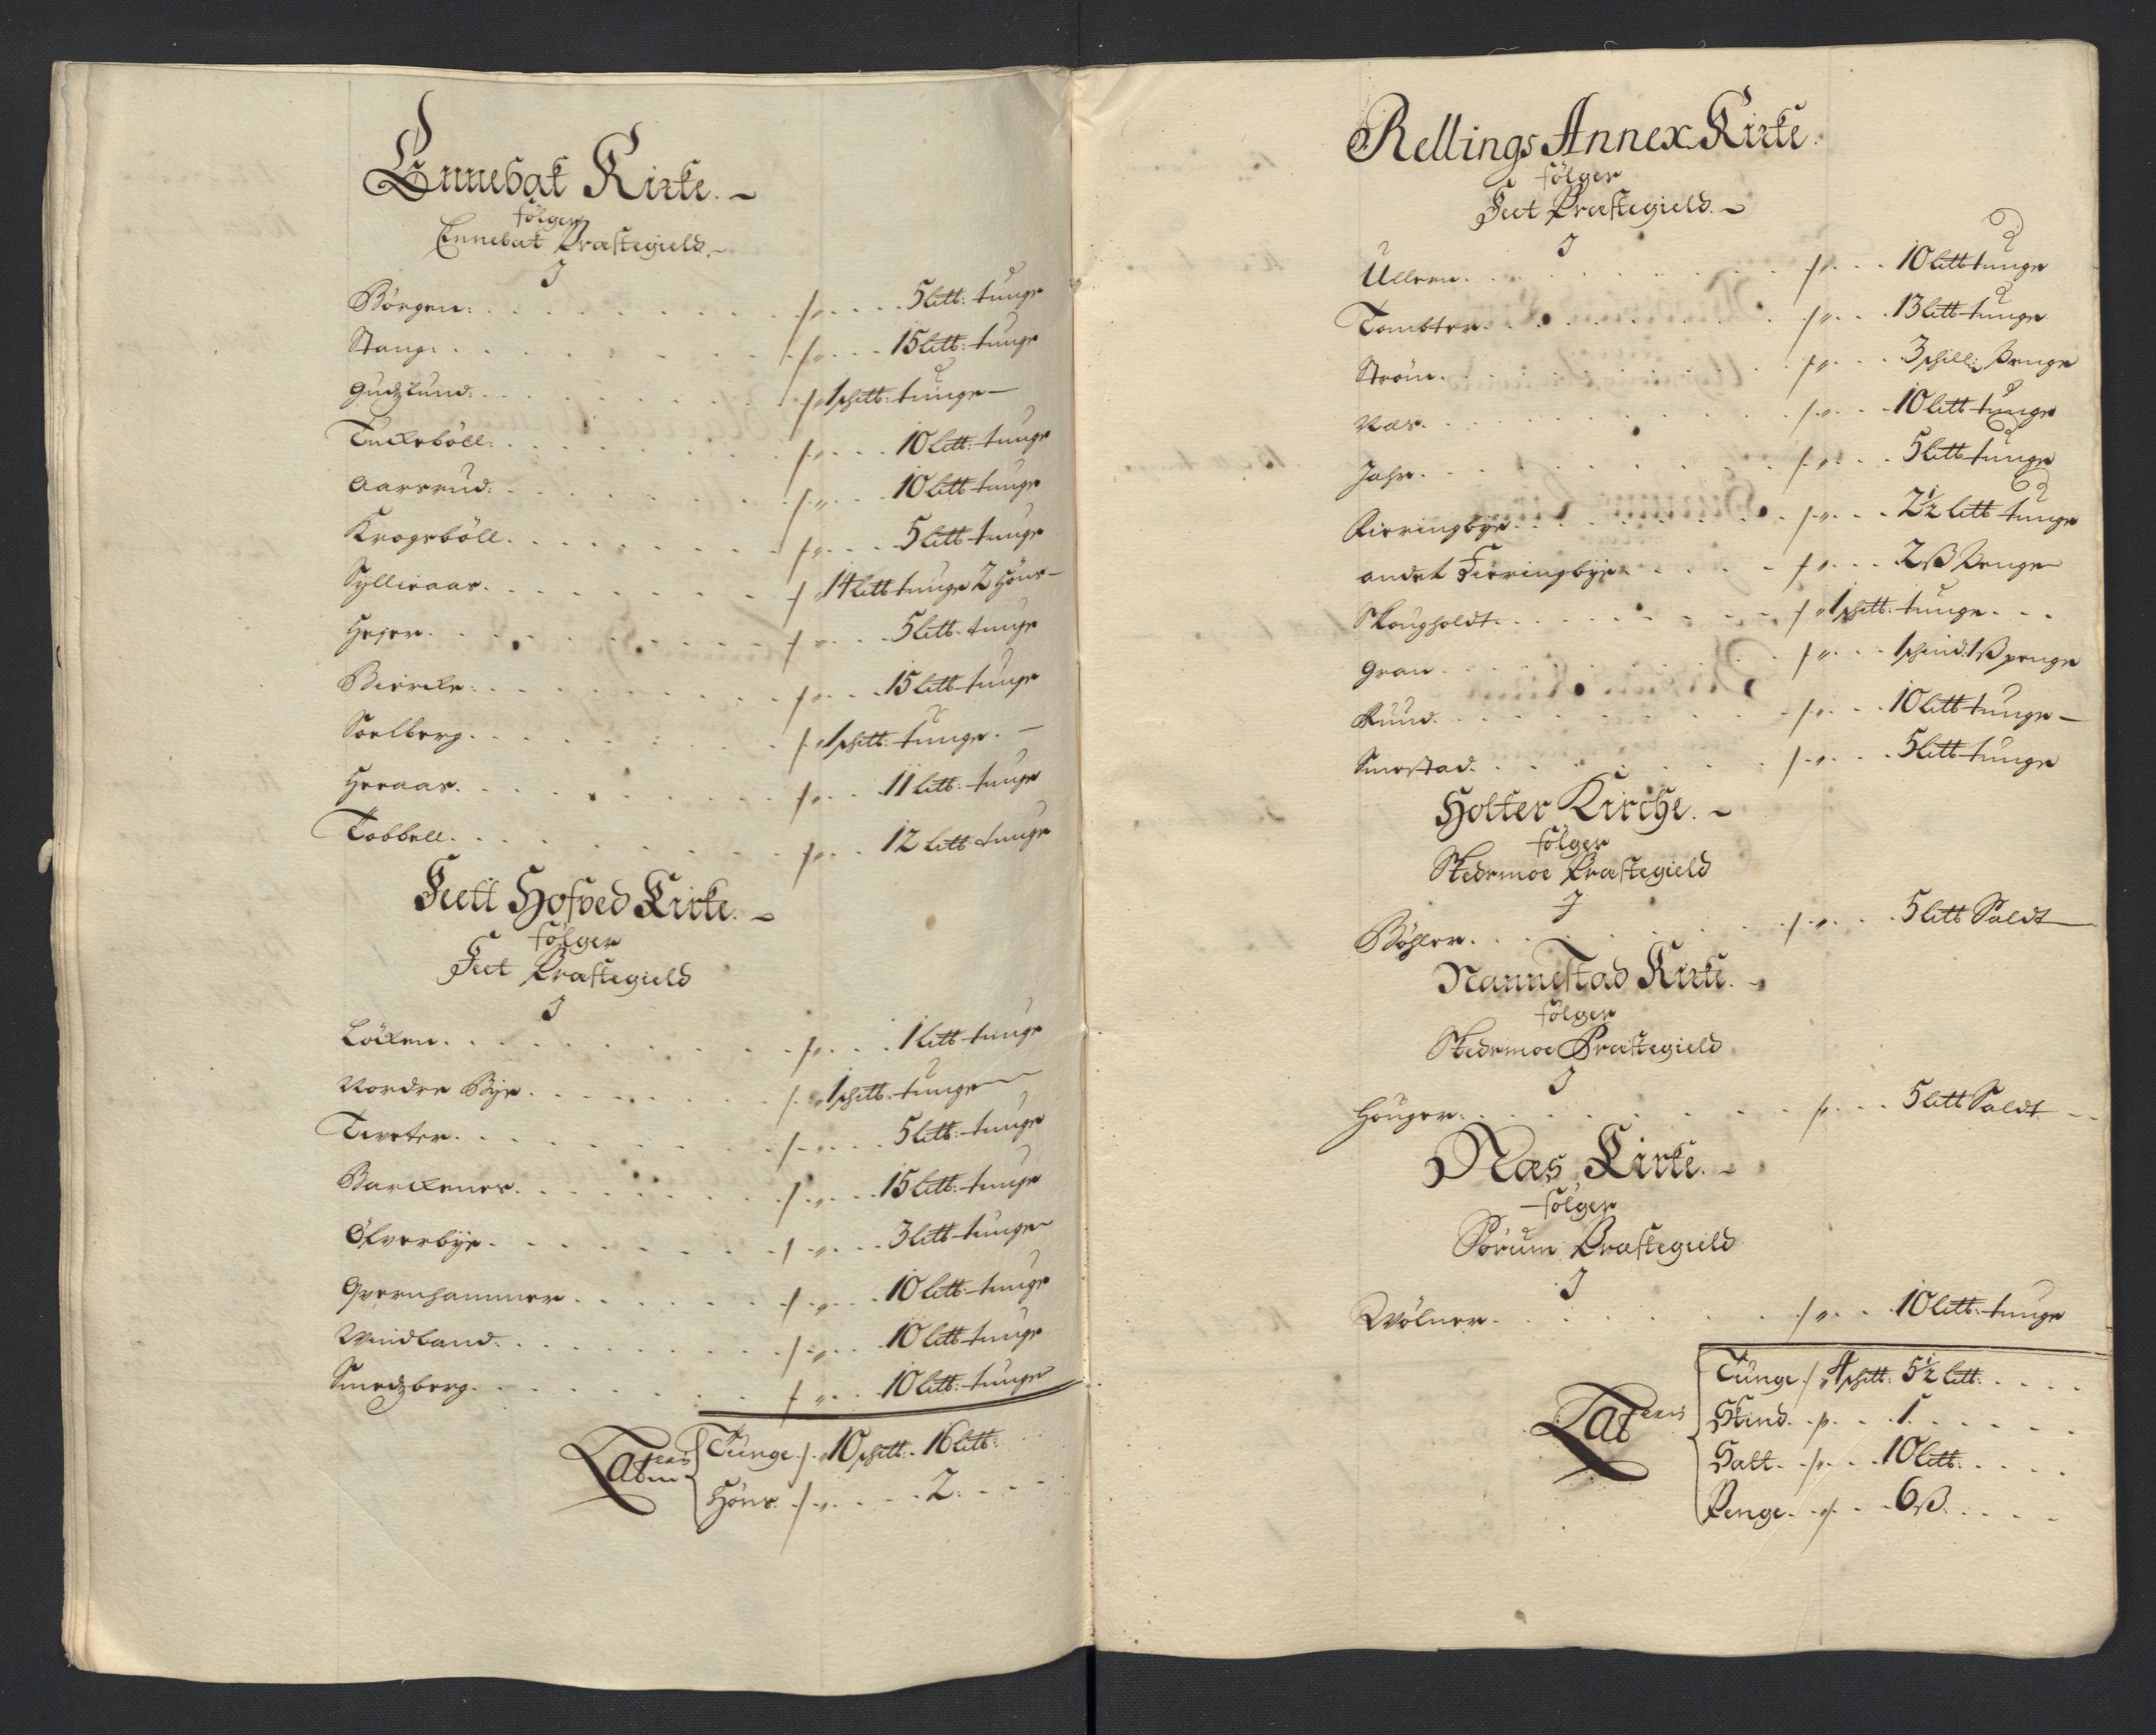 Ennebak Kirke.
følger
Ennebak Præstegield.
I
Börgen. 5 litt: tunge
Stang. 15 litt: tunge
Gudzlund. 1 schitt: tunge
Tuckeböll. 10 litt: tunge
Aarsrud. 10 litt tunge
Krogsböll. 5 litt tunge
Sÿlliaas. 14 litt tunge 2 Höns
Heier. 5 litt. tunge
Biercke. 15 litt tunge
Soelberg. 1 schitt: tunge.
Heraas. 11 litt: tunge
Tobbell. 12 litt tunge
Feett Hofved Kirke.
følger
Feet Præstegield
I
Löcken. 1 litt tunge
Nordre Bÿe. 1 schitt. tunge
Tveter. 5 litt: tunge
Barckenes. 15 litt: tunge
Öfverbÿe. 3 litt tunge
Qvernhammer. 10 litt: tunge
Windland. 10 litt tunge
Smedzberg. 10 litt: tunge
Lateris
Tunge 10 schitt. 16 litt:
Höns 2.
Rellings Annex Kirke.
følger
Feet Præstegield.
I
Ullern. 10 litt tunge
Tombter. 13 litt tunge
Ström. 3 schill: Penge
Næs. 10 litt tunge
Jahr. 5 litt tunge
Fierringbÿe. 2½ litt tunge
andet Fierringbÿe. 2 ß Penge
Skougholdt. 1 schitt: tunge.
Gran. 1 schind. 1 ß penge
Ruud. 10 litt tunge
Smestad. 5 litt tunge
Holter Kirche.
følger
Skedsmoe Præstegield
I
Böhler. 5 litt Saldt
Nannestad Kirke.
følger
Skedsmoe Præstegield
I
Houger. 5 litt Saldt
Næs Kirke.
følger
Sörum Præstegield
I
Wölner. 10 litt: tunge
Lateris
Tunge 4 schitt: 5½ litt.
Skind. 1.
Salt. 10 litt.
Penge. 6 ß.